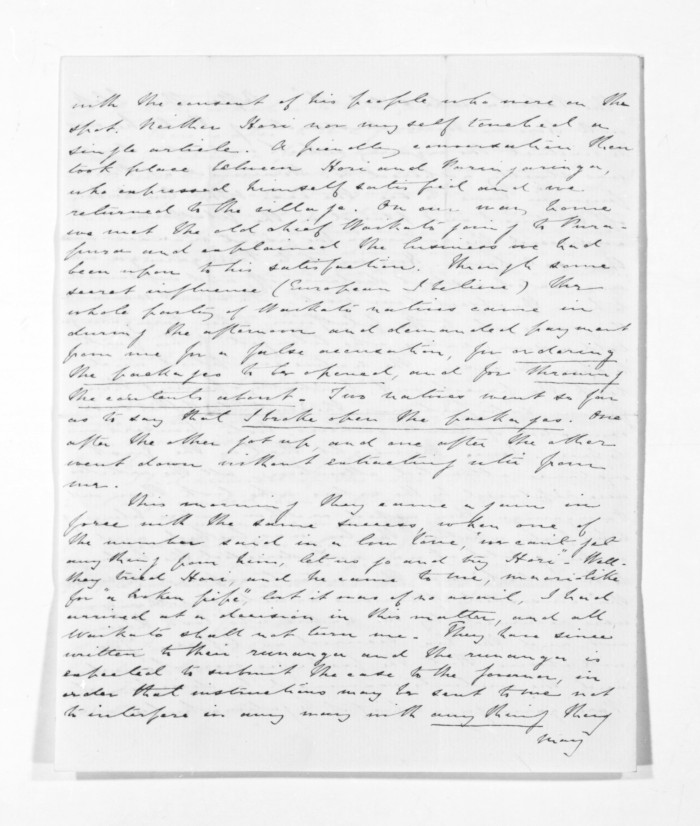 with the consent of his people who were on the
spot. Neither Hori nor myself touched a
single article. A friendly conversation then
took place between Hori and
who expressed himself satisfied and we
returned to the village. On our way home
we met the old chief Waikato going to
and explained the business we had
been upon to his satisfaction. Through some
secret influence (European I believe) the
whole party of Waikato natives came in
during the afternoon and demanded payment
from me for a false accusation, for ordering
the packages to be opened, and for throwing
the contents about. Two natives went so far
as to say that I broke open the packages. One
after the other got up and one after the other
went down without extracting utu from
me.
This morning they came again in
force with the same success, when one of
the number said in a low tone, "we can't get
anything from him, let us go and try Hori". Well-
they tried Hori, and he came to me, maori-like
for "a token pipe", but it was of no avail, I had
arrived at a decision in this matter, and all
Waikato shall not turn me. They have since
written to their runanga and the runanga is
expected to submit the case to the Governor, in
order that instructions may be sent to me not
to interfere in any way with anything they
may